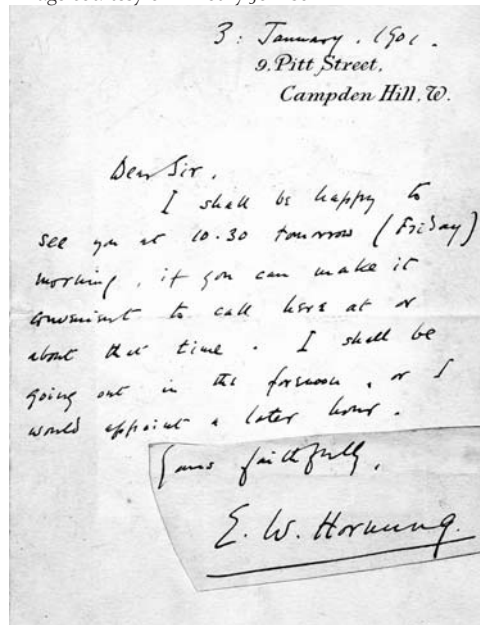 3: January. 1901.
9. Pitt Street,
Campden Hill, W.
Dear Sir,
I shall be happy to
see you at 10.30 tomorrow (Friday)
morning, if you can make it
convenient to call here at or
about that time. I shall be
going out in the forenoon, or I
would appoint a later hour.
Yours faithfully,
E. W. Hornung.